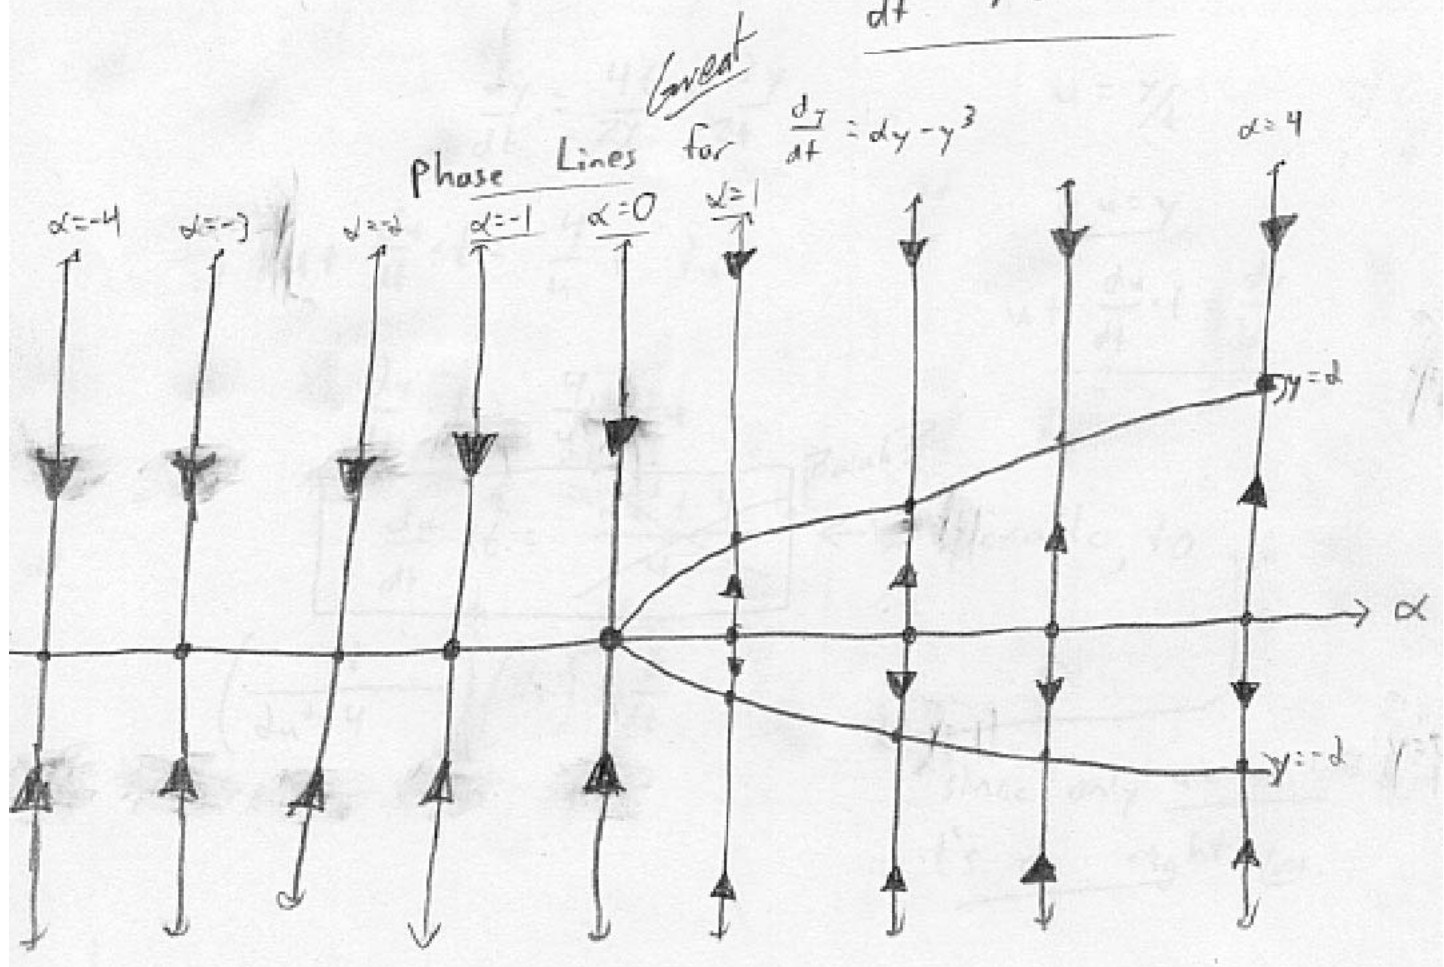 dt
Great
Phase Lines for dy/dt = αy - y³
α=-4 α=-3 α=-2 α=-1 α=0 α=1 α=4
y=2
α
y=-2